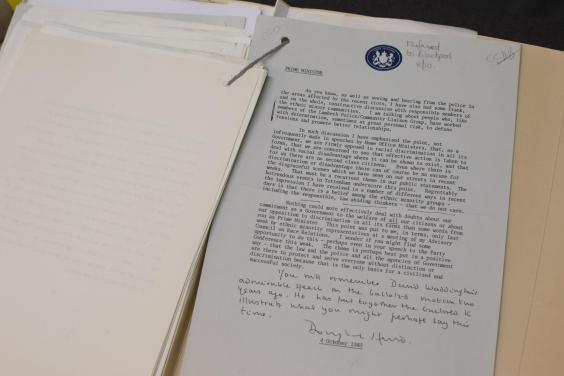 Referred
to Blackpool
8/10.
PRIME MINISTER
As you know, as well as seeing and hearing from the police in
the areas affected by the recent riots, I have also had some frank,
and on the whole, constructive discussion with responsible members of
the ethnic minority communities. I am talking about people who, like
members of the Lambeth Police/Community Liaison Group, have worked
with determination, sometimes at great personal risk, to defuse
tensions and promote better relationships.
In such discussion I have emphasised the point, not
infrequently made in speeches by Home Office Ministers, that, as a
Government, we are firmly opposed to racial discrimination in all its
forms, that we are concerned to see that effective action is taken to
deal with racial disadvantage where it can be shown to exist, and that
for us there are no second class citizens. Even where there is
discrimination or disadvantage there can of course be no excuse for
the disgraceful scenes which we have seen on our streets in recent
weeks. That must be a recurrent theme in our public statements. The
horrendous events in Tottenham underscore this point. Regrettably
the impression I have received in a number of different ways in recent
days is that there is a belief among the ethnic minority groups -
including the responsible, law abiding thinkers - that we do not care.
Nothing could more effectively deal with doubts about our
commitment as a Government to the welfare of all our citizens or about
our opposition to discrimination in all its forms than some words from
you as Prime Minister. This point was put to me, in terms, only last
week by ethnic minority representatives at a meeting of my Advisory
Council on Race Relations. I wonder if you might find some
opportunity to do this - perhaps even in your speech to the Party
Conference this week. The theme is perhaps best put in a positive
way - that the law and the police and all the agencies of Government
are there to protect and serve everyone without distinction or
discrimination because that is the only basis for a civilised and
successful society.
You will remember David Waddington's
admirable speech on the balloted motion two
years ago. He has put together the enclosed to
illustrate what you might perhaps say this
time.
Douglas Hurd.
October 1985